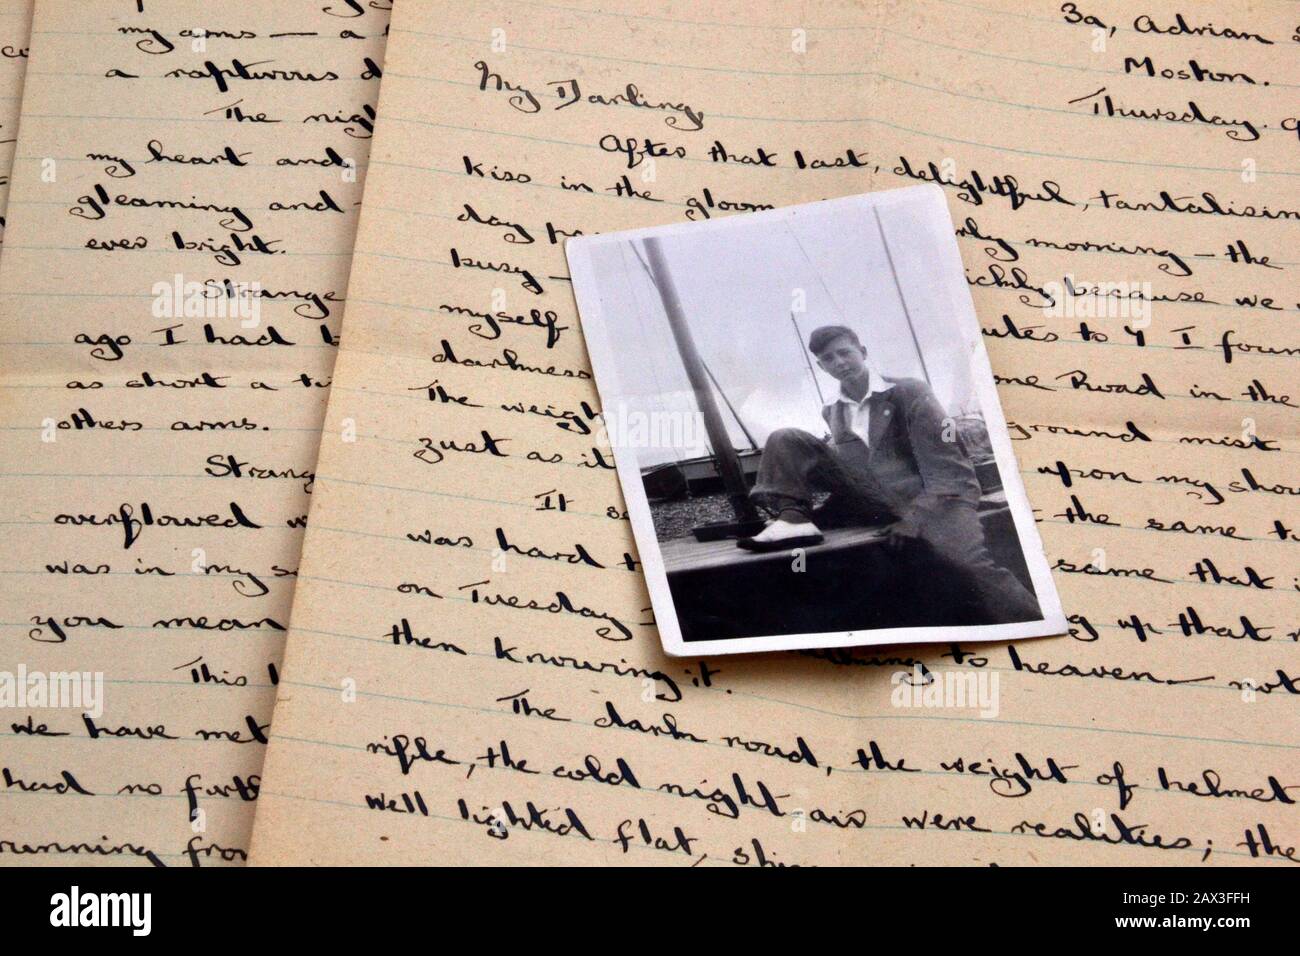 my arms — a
a rapturous
The nigh
my heart and
gleaming and
ever bright.
Strange
ago I had b
as short a ti
others arms.
Strang
overflowed w
was in my s
you mean
This
we have met
had no furth
running from
3a, Adrian S
Moston.
Thursday.
My Darling,
After that last, delightful, tantalisin
kiss in the gloom
day ha rly morning — the
busy — ickly because we
myself utes to 4 I foun
darkness one Road in the
The weigh ground mist
just as it upon my shou
It se t the same t
was hard t same that i
on Tuesday — g up that
then knowing it. thing to heaven — not
The dark road, the weight of helmet
rifle, the cold night air were realities; the
well lighted flat,
alamy
Image ID: 2AX3FFH
www.alamy.com